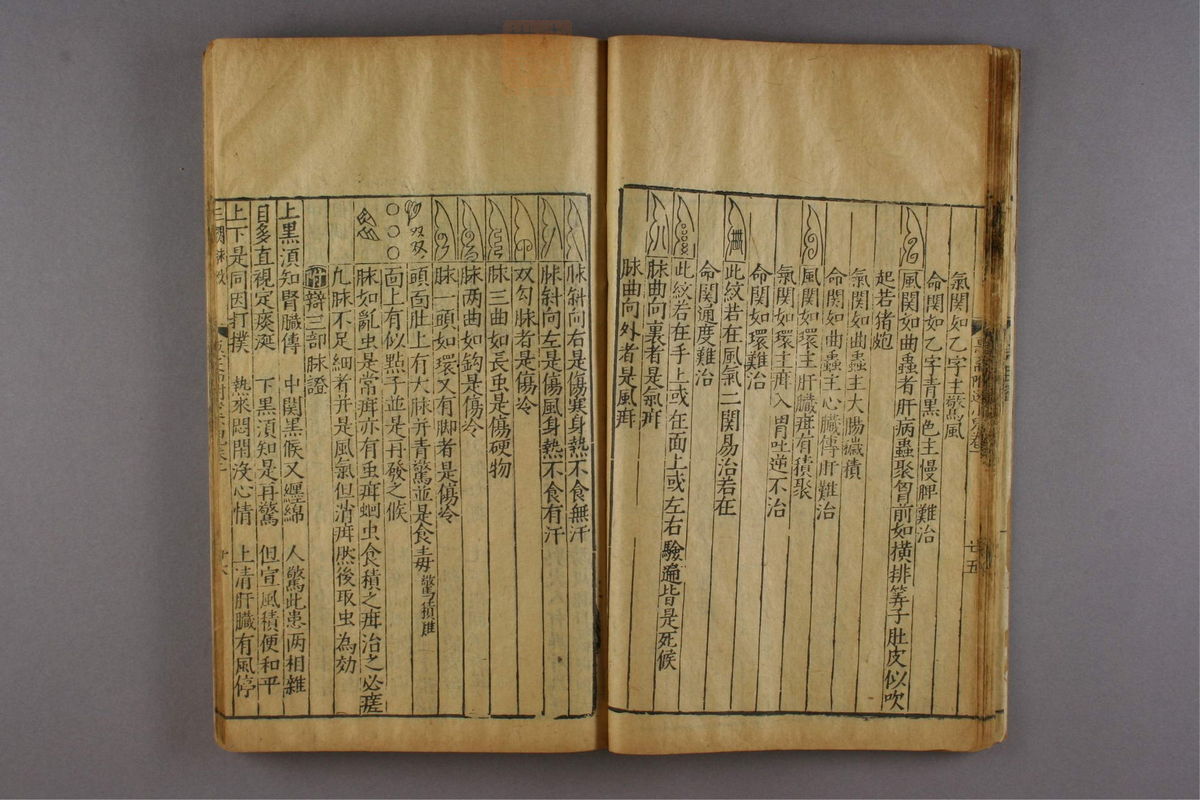 氣関如乙字主驚風
命関如乙字青黑色主慢脾難治
風関如曲蟲者肝病蟲聚胷前如橫排筭子肚皮似吹
起若猪脃
氣関如曲蟲主大腸穢積
命関如曲蟲主心臟傳肝難治
風関如環主肝臟疳有積聚
氣関如環主疳入胃吐逆不治
命関如環難治
此紋若在風氣二関易治若在
命関通度難治
此紋若在手上或在面上或左右驗遍皆是死候
脉曲向裏者是氣疳
脉曲向外者是風疳
脉斜向右是傷寒身熱不食無汗
脉斜向左是傷風身熱不食有汗
双勾脉者是傷冷
脉三曲如長虫是傷硬物
脉两曲如鈎是傷冷
脉一頭如環又有脚者是傷冷
頭面肚上有大脉并青驚並是食毒驚積
面上有似點子並是再發之候
脉如亂虫是常疳亦有虫疳蛔虫食積之疳治之必瘥
九脉不足細者并是風氣但消疳然後取虫為効
附辯三部脉證
上黑湏知腎臟傳 中関黑候又纏綿 人驚此患两相雜
目多直視定痰涎 下黑湏知是再驚 但宣風積便和平
上下是同因打撲 熱來悶閙沒心情 上青肝臟有風停